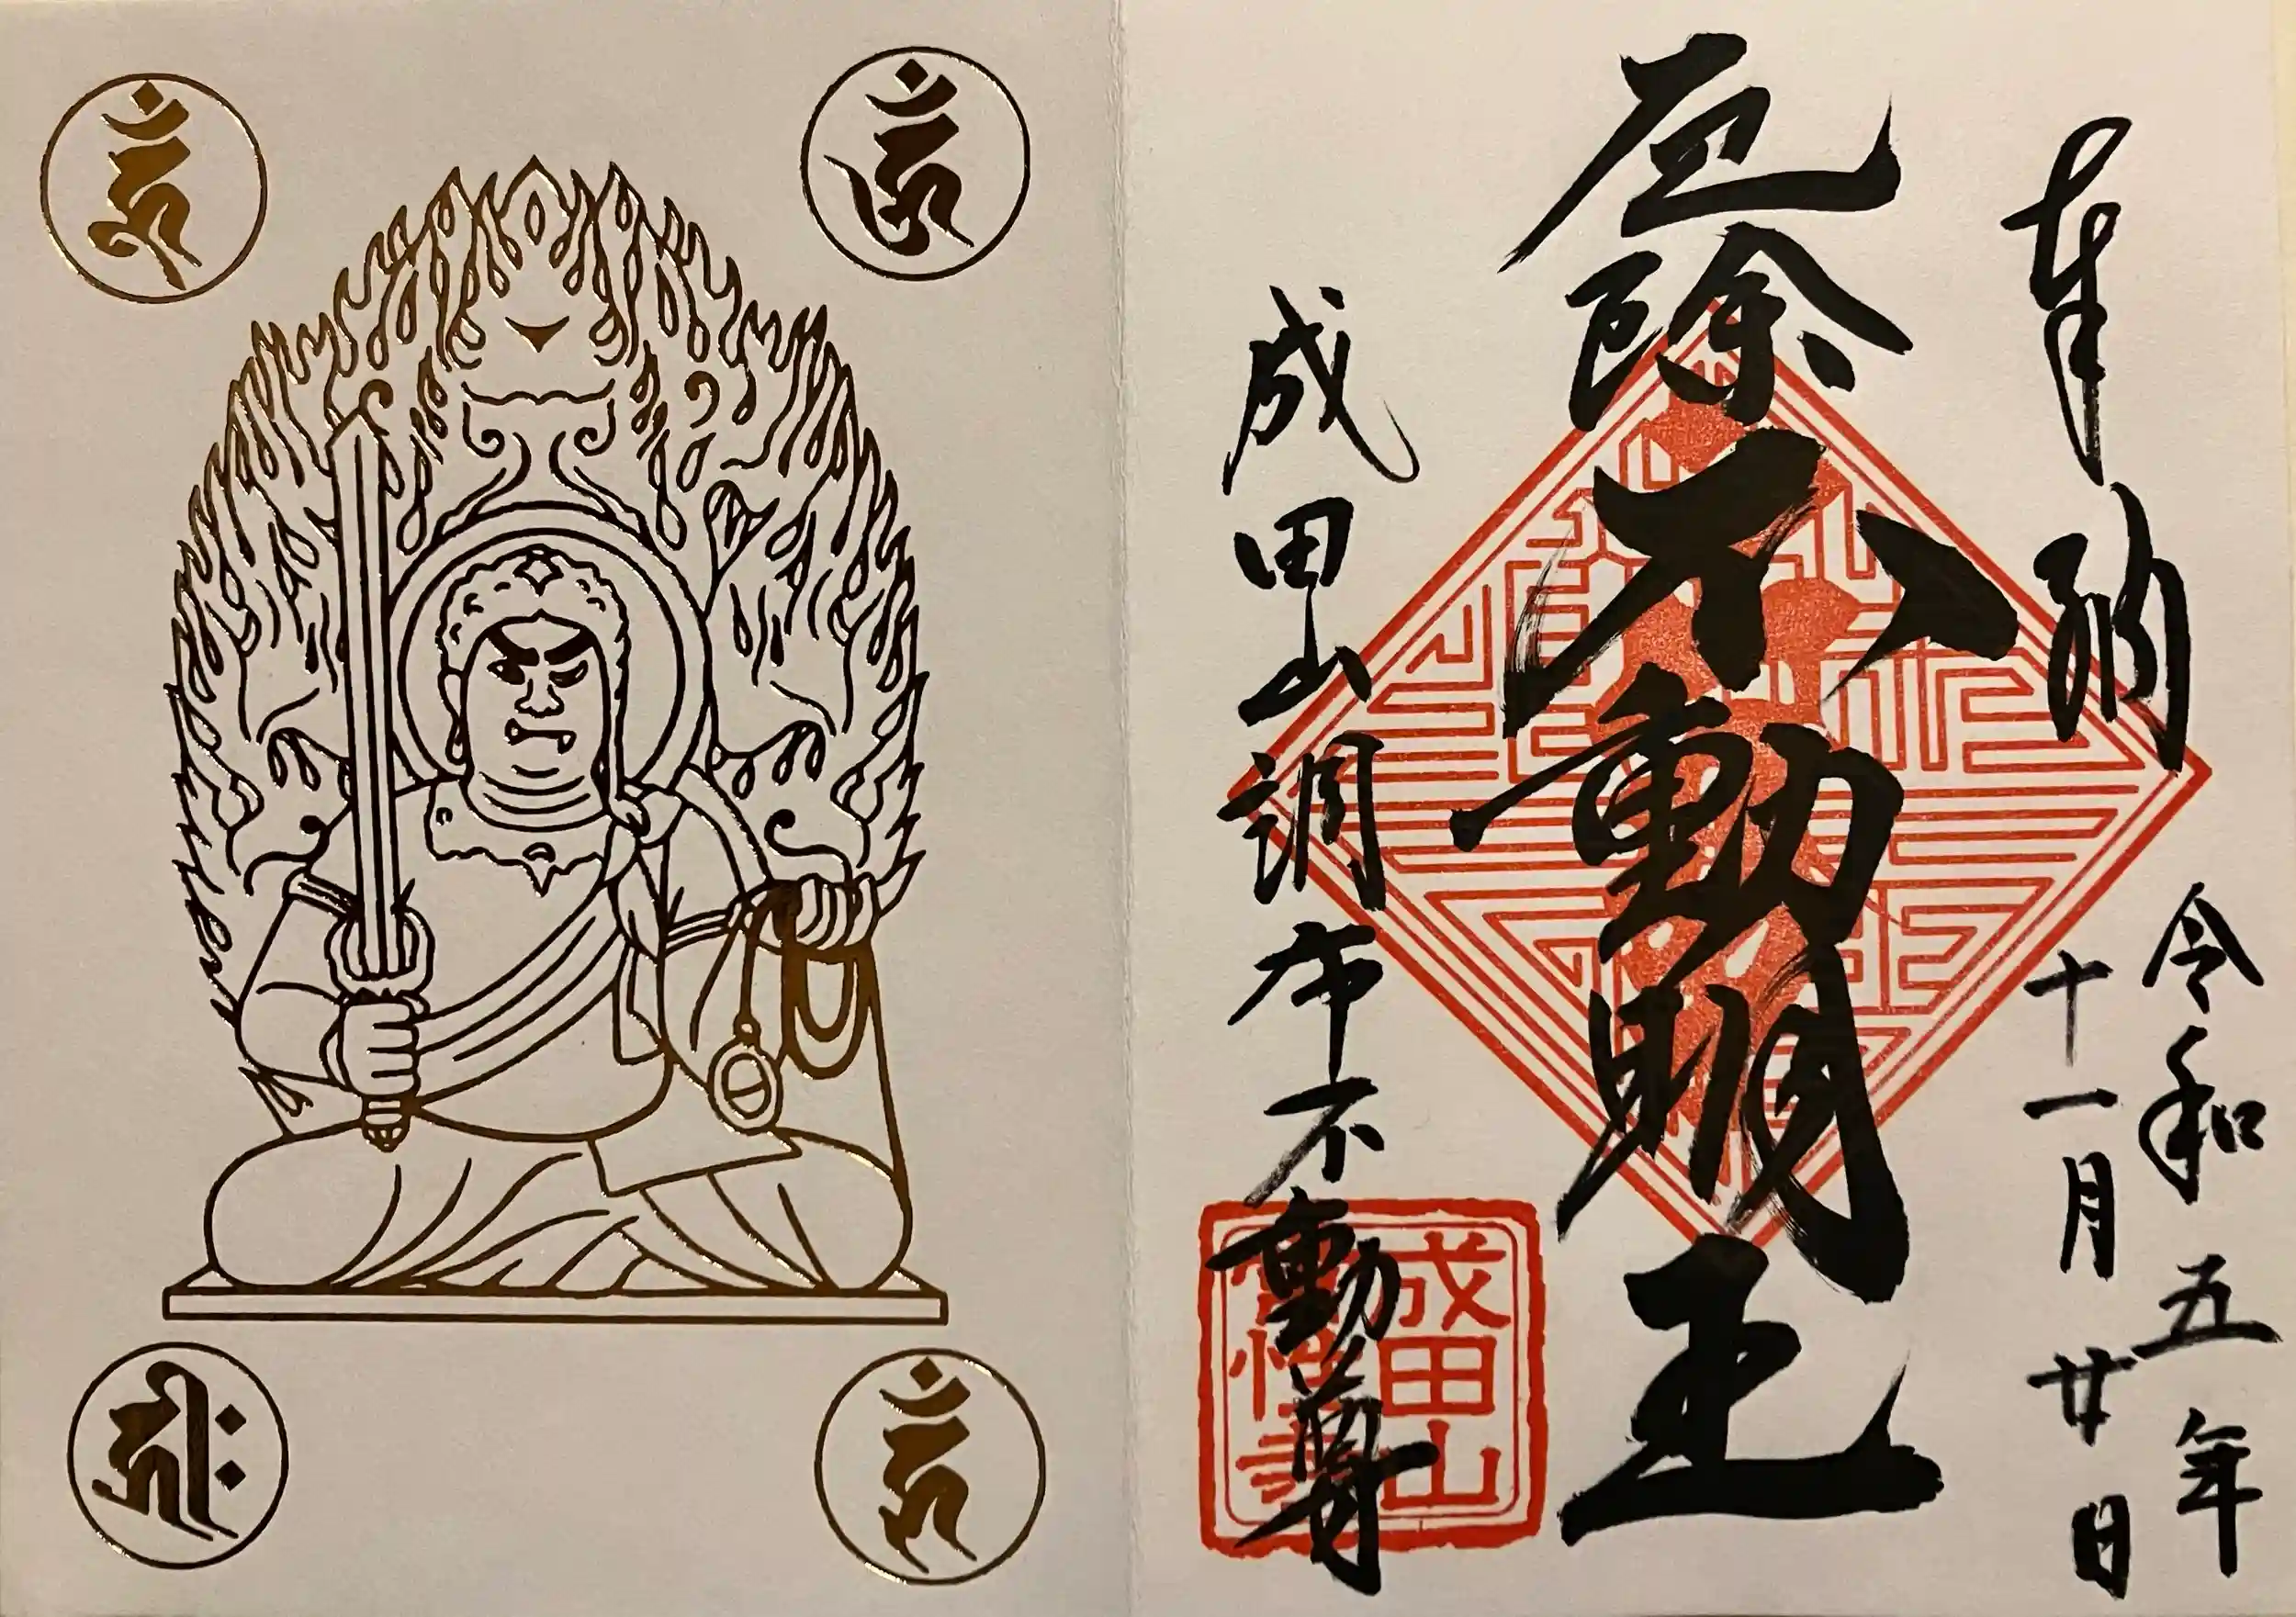 奉納
令和五年
十一月廿日
厄除
不動明王
成田山調布不動尊
成田山